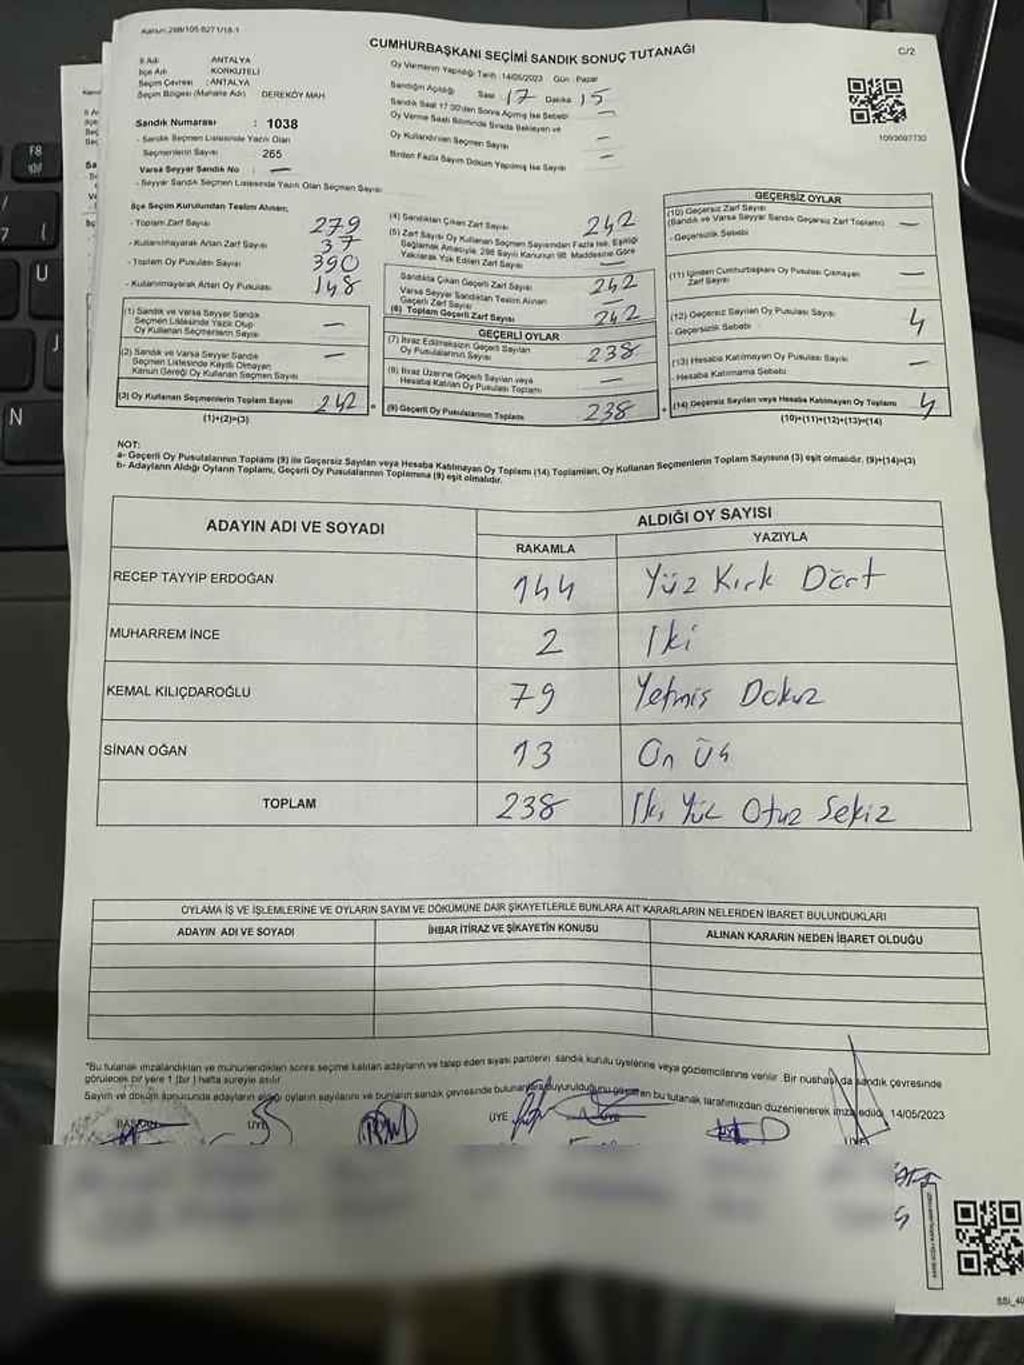 Kanun:298/105-6271/18-1
CUMHURBAŞKANI SEÇİMİ SANDIK SONUÇ TUTANAĞI
C/2
İl Adı ANTALYA
İlçe Adı KORKUTELİ
Seçim Çevresi : ANTALYA
Seçim Bölgesi (Mahalle Adı) DEREKÖY MAH
Sandık Numarası : 1038
- Sandık Seçmen Listesinde Yazılı Olan
Seçmenlerin Sayısı 265
Varsa Seyyar Sandık No —
- Seyyar Sandık Seçmen Listesinde Yazılı Olan Seçmen Sayısı
Oy Vermenin Yapıldığı Tarih : 14/05/2023 Gün : Pazar
Sandığın Açıldığı Saat 17 Dakika 15
Sandık Saat 17:00'den Sonra Açılmış İse Sebebi —
Oy Verme Saati Bitiminde Sırada Bekleyen ve
Oy Kullandırılan Seçmen Sayısı —
Birden Fazla Sayım Döküm Yapılmış İse Sayısı —
İlçe Seçim Kurulundan Teslim Alınan;
- Toplam Zarf Sayısı 279
- Kullanılmayarak Artan Zarf Sayısı 37
- Toplam Oy Pusulası Sayısı 390
- Kullanılmayarak Artan Oy Pusulası 148
(1) Sandık ve Varsa Seyyar Sandık
Seçmen Listesinde Yazılı Olup
Oy Kullanan Seçmenlerin Sayısı —
(2) Sandık ve Varsa Seyyar Sandık
Seçmen Listesinde Kayıtlı Olmayan
Kanun Gereği Oy Kullanan Seçmen Sayısı —
(3) Oy Kullanan Seçmenlerin Toplam Sayısı 242
(1)+(2)=(3)
(4) Sandıktan Çıkan Zarf Sayısı 242
(5) Zarf Sayısı Oy Kullanan Seçmen Sayısından Fazla İse, Eşitliği
Sağlamak Amacıyla 298 Sayılı Kanunun 98. Maddesine Göre
Yakılarak Yok Edilen Zarf Sayısı —
Sandıkta Çıkan Geçerli Zarf Sayısı 242
Varsa Seyyar Sandıktan Teslim Alınan
Geçerli Zarf Sayısı —
(6) Toplam Geçerli Zarf Sayısı 242
GEÇERLİ OYLAR
(7) İtiraz Edilmeksizin Geçerli Sayılan
Oy Pusulalarının Sayısı 238
(8) İtiraz Üzerine Geçerli Sayılan veya
Hesaba Katılan Oy Pusulası Toplamı —
(9) Geçerli Oy Pusulalarının Toplamı 238
1093687733
GEÇERSİZ OYLAR
(10) Geçersiz Zarf Sayısı
(Sandık ve Varsa Seyyar Sandık Geçersiz Zarf Toplamı) —
- Geçersizlik Sebebi
(11) İçinden Cumhurbaşkanı Oy Pusulası Çıkmayan
Zarf Sayısı —
(12) Geçersiz Sayılan Oy Pusulası Sayısı 4
- Geçersizlik Sebebi
(13) Hesaba Katılmayan Oy Pusulası Sayısı —
- Hesaba Katılmama Sebebi
(14) Geçersiz Sayılan veya Hesaba Katılmayan Oy Toplamı 4
(10)+(11)+(12)+(13)=(14)
NOT:
a- Geçerli Oy Pusulalarının Toplamı (9) ile Geçersiz Sayılan veya Hesaba Katılmayan Oy Toplamı (14) Toplamları, Oy Kullanan Seçmenlerin Toplam Sayısına (3) eşit olmalıdır. (9)+(14)=(3)
b- Adayların Aldığı Oyların Toplamı, Geçerli Oy Pusulalarının Toplamına (9) eşit olmalıdır.
ADAYIN ADI VE SOYADI ALDIĞI OY SAYISI
RAKAMLA YAZIYLA
RECEP TAYYIP ERDOĞAN 144 Yüz Kırk Dört
MUHARREM İNCE 2 İki
KEMAL KILIÇDAROĞLU 79 Yetmiş Dokuz
SİNAN OĞAN 13 On Üç
TOPLAM 238 İki Yüz Otuz Sekiz
OYLAMA İŞ VE İŞLEMLERİNE VE OYLARIN SAYIM VE DÖKÜMÜNE DAİR ŞİKAYETLERLE BUNLARA AİT KARARLARIN NELERDEN İBARET BULUNDUKLARI
ADAYIN ADI VE SOYADI İHBAR İTİRAZ VE ŞİKAYETİN KONUSU ALINAN KARARIN NEDEN İBARET OLDUĞU
*Bu tutanak imzalandıktan ve mühürlendikten sonra seçime katılan adayların ve talep eden siyasi partilerin sandık kurulu üyelerine veya gözlemcilerine verilir. Bir nüshası da sandık çevresinde
görülecek bir yere 1 (bir) hafta süreyle asılır.
Sayım ve döküm sonucunda adayların aldığı oyların sayılarını ve bunların sandık çevresinde bulunanlara duyurulduğunu gösteren bu tutanak tarafımızdan düzenlenerek imza edildi. 14/05/2023
BAŞKAN ÜYE ÜYE ÜYE ÜYE ÜYE